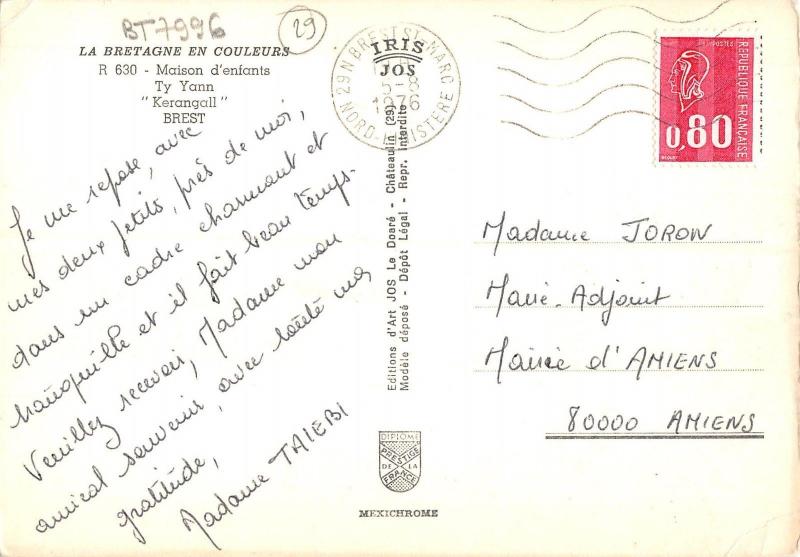 BT7996
29
LA BRETAGNE EN COULEURS
R 630 - Maison d'enfants
Ty Yann
"Kerangall"
BREST
Je me repose, avec
mes deux petits, près de moi,
dans un cadre charmant et
tranquille et il fait beau temps.
Veuillez recevoir, Madame mon
amical souvenir, avec toute ma
gratitude,
Madame TAIEBI
IRIS
JOS
29 N BREST ST-MARC
1976
NORD FINISTERE
Editions d'Art JOS Le Doaré - Châteaulin (29)
Modèle déposé - Dépôt Légal - Repr. interdite
DIPLOME
PRESTIGE
DE LA
FRANCE
MEXICHROME
POSTES
REPUBLIQUE FRANÇAISE
0,80
BEQUET
Madame JORON
Maire-Adjoint
Mairie d'AMIENS
80000 AMIENS